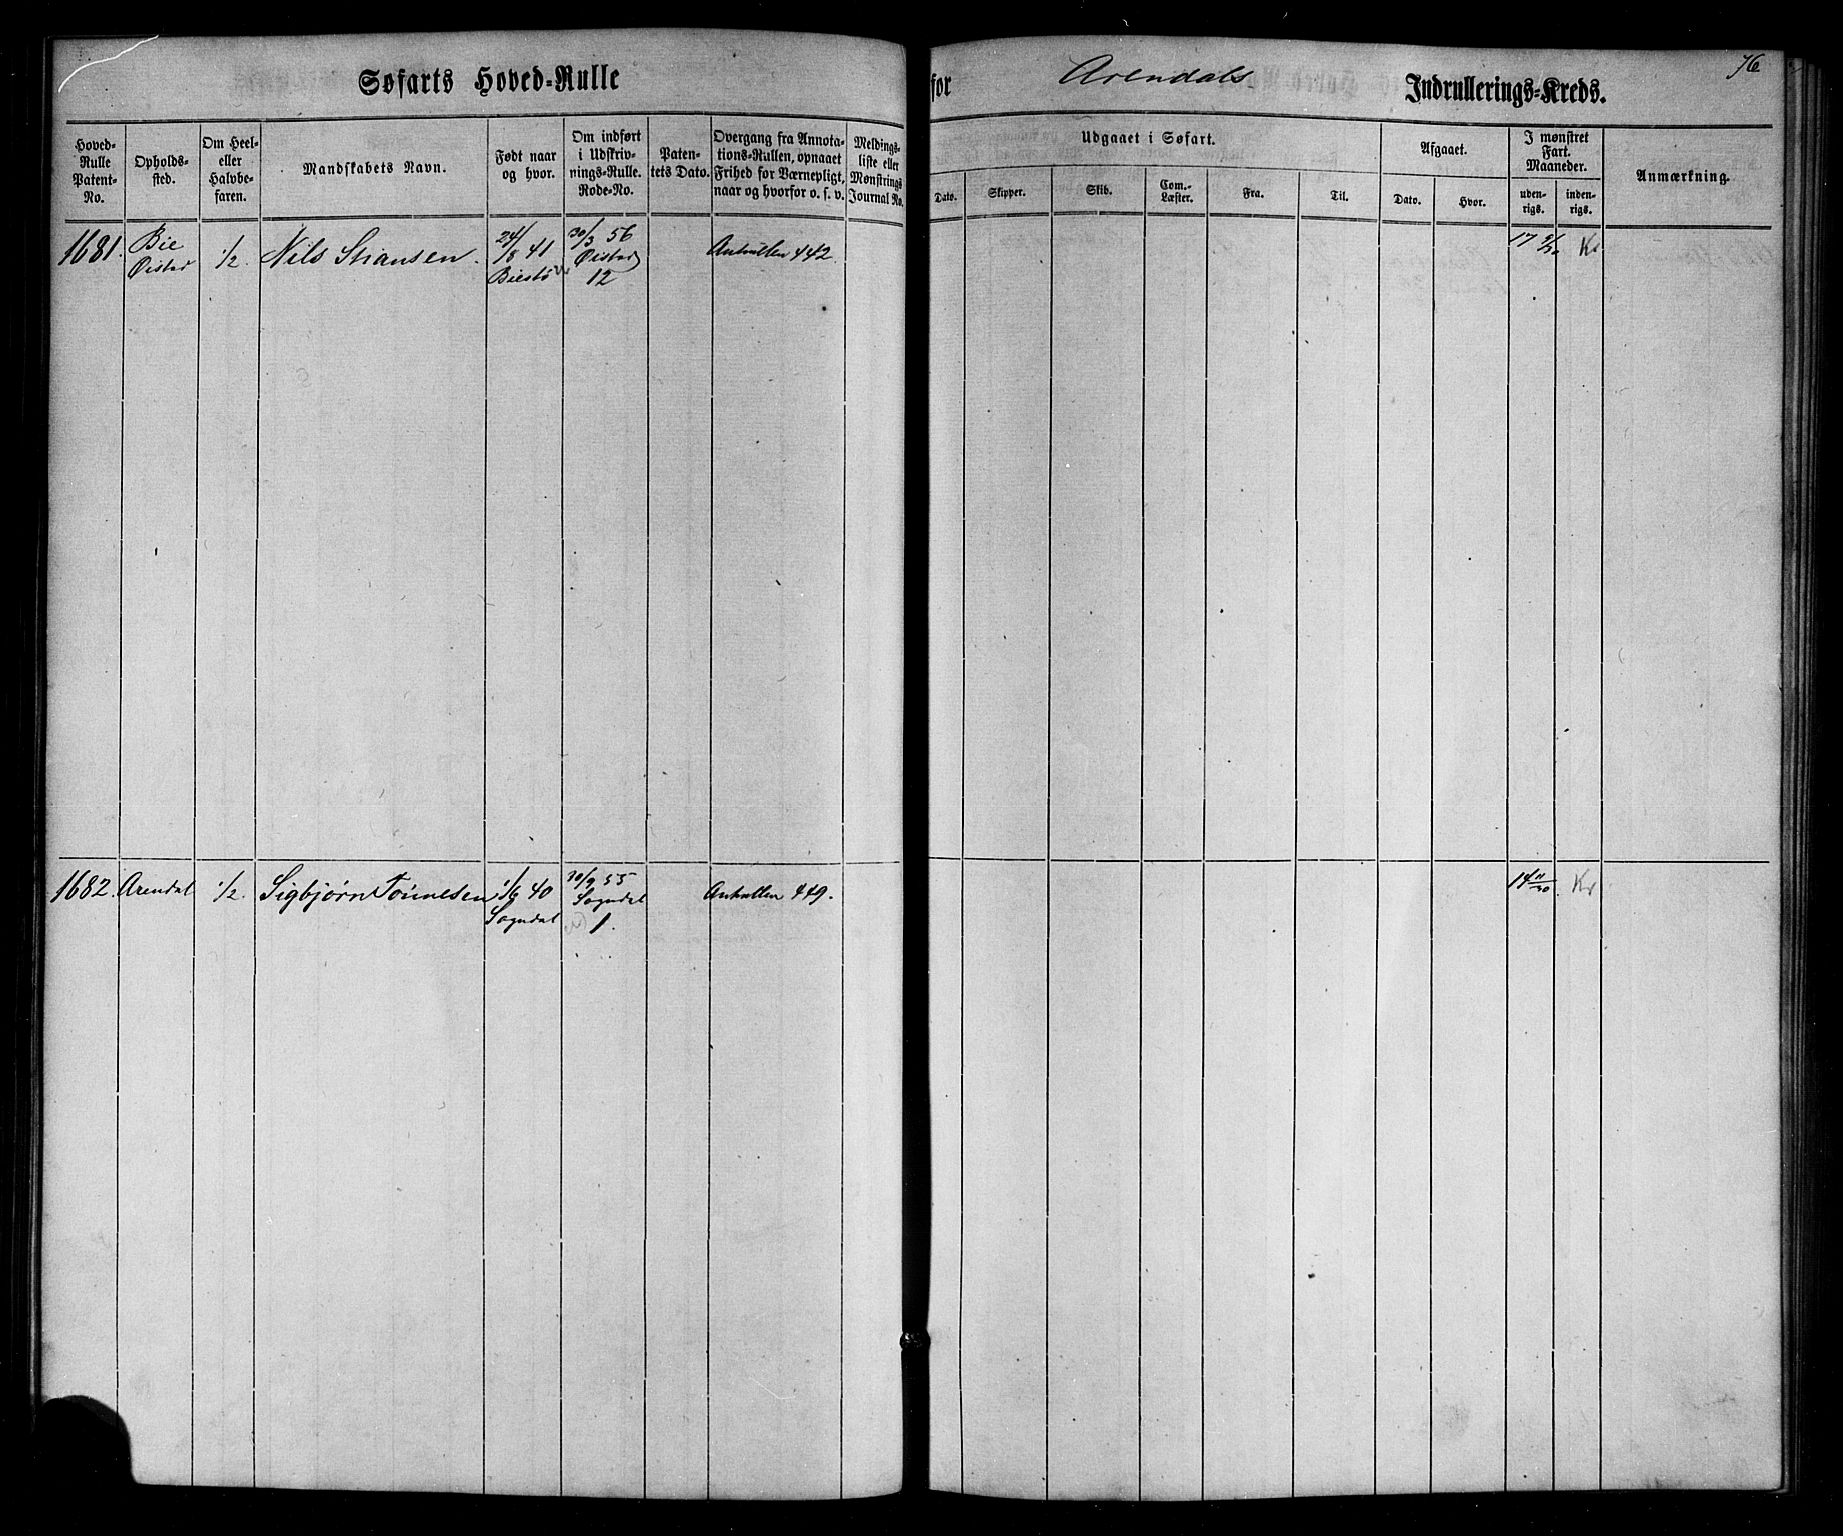 Søfarts Hoved-Rulle for Arendals Indrullerings-Kreds.
76
Hoved-Rulle Patent-No.
Opholds-sted.
Om Heel- eller Halvbe-faren.
Mandskabets Navn.
Født naar og hvor.
Om indført i Udskriv-nings-Rulle. Rode-No.
Paten-tets Dato.
Overgang fra Annota-tions-Rullen, opnaaet Frihed for Værnepligt, naar og hvorfor o. s. v.
Meldings-liste eller Mønstrings Journal No.
Udgaaet i Søfart.
Dato.
Skipper.
Skib.
Com.-Læster.
Fra.
Til.
Afgaaet.
Dato.
Hvor.
I mønstret Fart. Maaneder.
uden-rigs.
inden-rigs.
Anmærkning.
1681.
Bie
Øistad
1/2
Nils Stiansen.
24/8 41
30/3 56
Øistad
12
442.
17
1682.
Arendal
1/2.
Sigbjørn Tönnesen
40
Sogndal
55
Sogndal
1.
449.
14 11/30